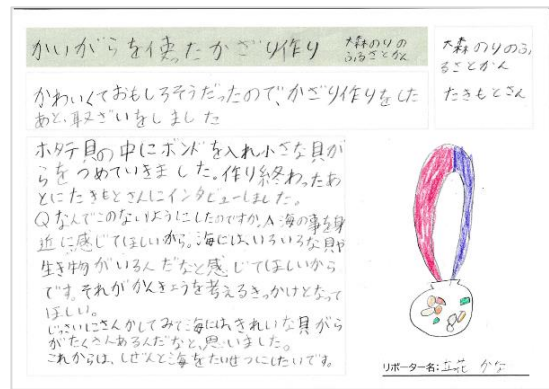 かいがらを使ったかざり作り
大森のりの
ふるさとかん
大森のりのふ
るさとかん
たきもとさん
かわいくておもしろそうだったので、かざり作りをした
あと、取ざいをしました
ホタテ貝の中にボンドを入れ小さな貝が
らをつめていきました。作り終わったあ
とにたきもとさんにインタビューしました。
Qなんでこのないようにしたのですか。A海の事を身
近に感じてほしいから。海には、いろいろな貝や
生き物がいるんだなと感じてほしいから
です。それがかんきょうを考えるきっかけとなって
ほしい。
じっさいにさんかしてみて海には、きれいな貝がら
がたくさんあるんだなと、思いました。
これからは、しぜんと海をたいせつにしたいです。
リポーター名：立花 かな